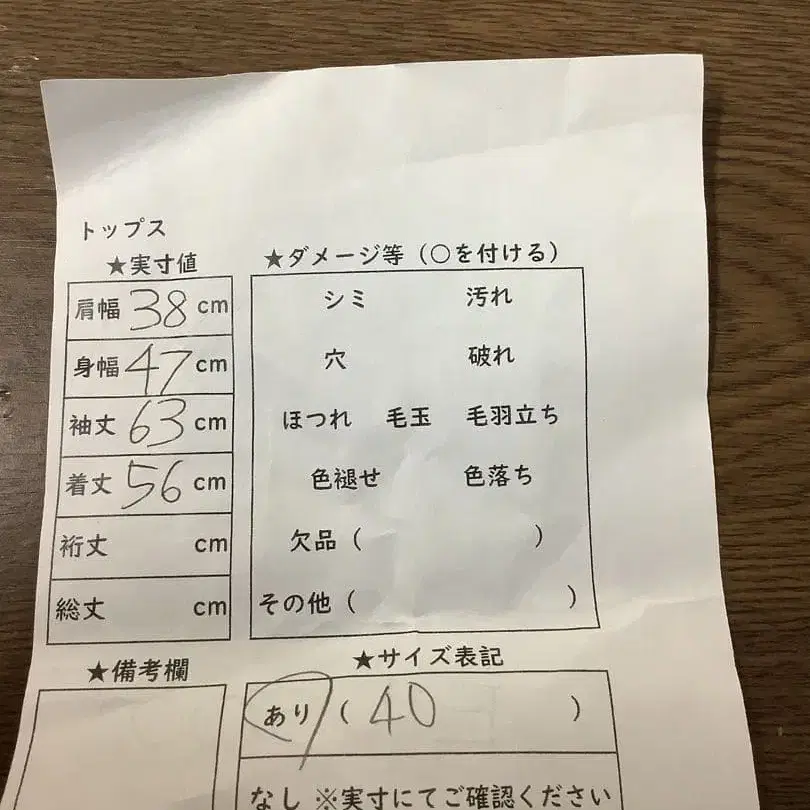 トップス
★実寸値
肩幅 38 cm
身幅 47 cm
袖丈 63 cm
着丈 56 cm
裄丈 cm
総丈 cm
★ダメージ等（○を付ける）
シミ 汚れ
穴 破れ
ほつれ 毛玉 毛羽立ち
色褪せ 色落ち
欠品（ ）
その他（ ）
★備考欄
★サイズ表記
あり（ 40 ）
なし ※実寸にてご確認ください